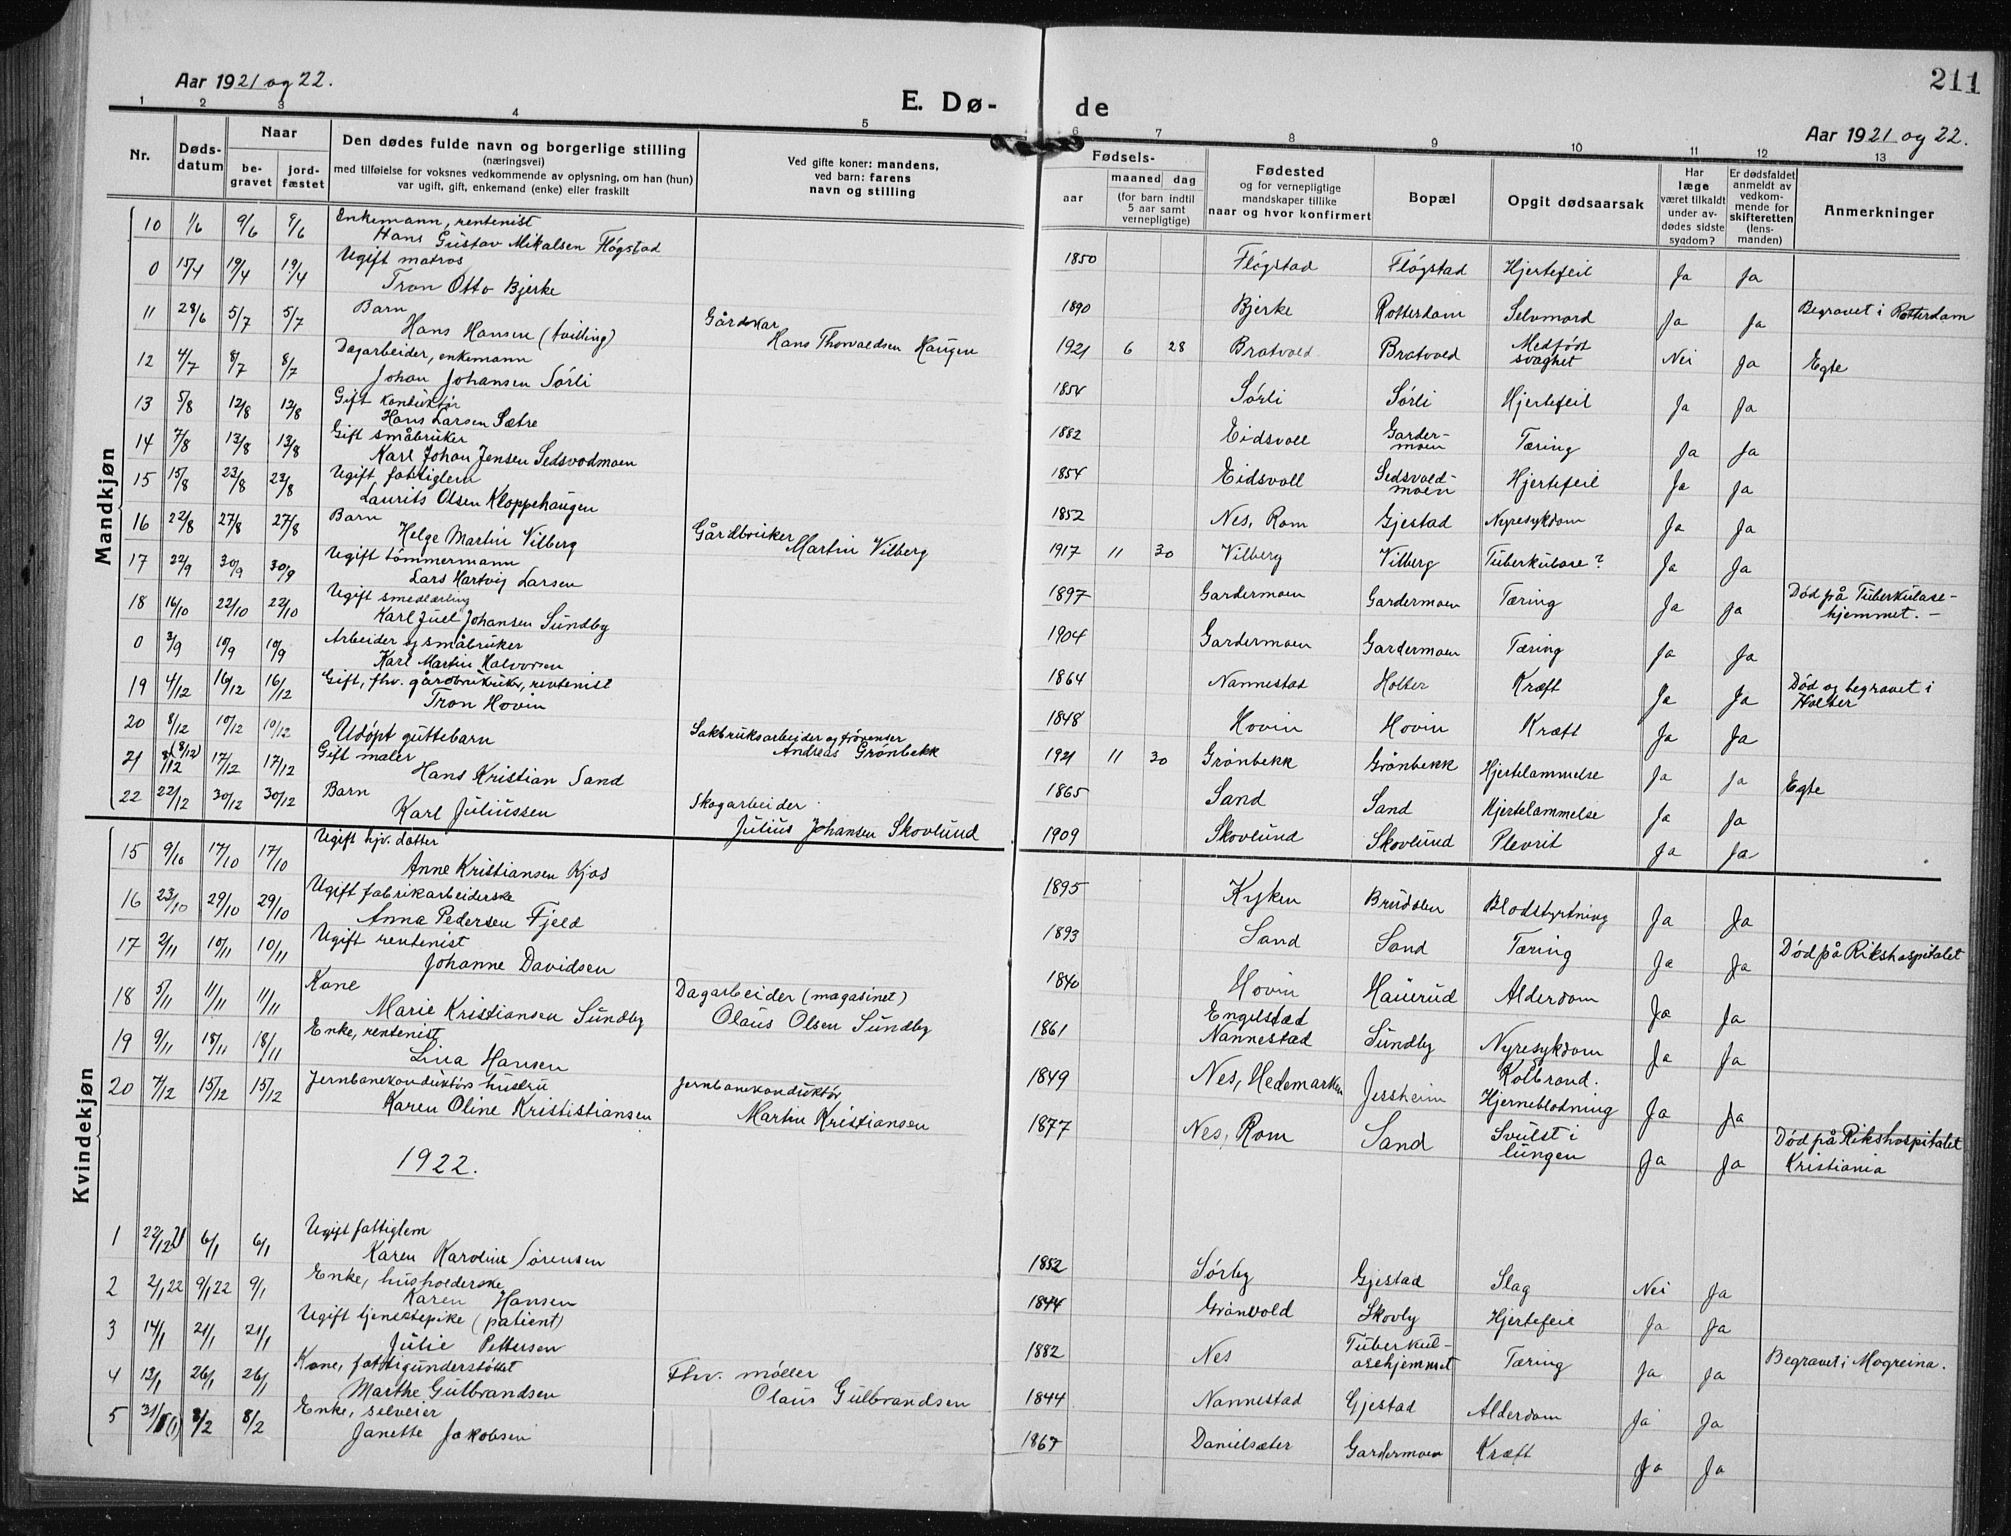 211
Aar 1921 og 22.
E. Dø- de
Aar 1921 og 22.
1 2 3 4 5 6 7 8 9 10 11 12 13
Nr.
Døds-datum
Naar
be-gravet
jord-fæstet
Den dødes fulde navn og borgerlige stilling
(næringsvei)
med tilføielse for voksnes vedkommende av oplysning, om han (hun)
var ugift, gift, enkemand (enke) eller fraskilt
Ved gifte koner: mandens,
ved barn: farens
navn og stilling
Fødsels-
aar
maaned dag
(for barn indtil
5 aar samt
vernepligtige)
Fødested
og for vernepligtige
mandskaper tillike
naar og hvor konfirmert
Bopæl
Opgit dødsaarsak
Har
læge
været tilkaldt
under av-
dødes sidste
sygdom?
Er dødsfaldet
anmeldt av
vedkom-
mende for
skifteretten
(lens-
manden)
Anmerkninger
Mandkjøn
10 1/6 9/6 9/6 Enkemann, rentenist
Hans Gustav Mikalsen Fløgstad 1850 Fløgstad Fløgstad Hjertefeil Ja Ja
0 15/4 19/4 19/4 Ugift matros
Tron Otto Bjerke 1890 Bjerke Rotterdam Selvmord Ja Ja Begravet i Rotterdam
11 28/6 5/7 5/7 Barn
Hans Hansen (tvilling) Gårdskar
Hans Thorvaldsen Haugen 1921 6 28 Bratvold Bratvold Medfødt
svaghet Nei Ja Egte
12 4/7 8/7 8/7 Dagarbeider, enkemann
Johan Johansen Sørli 1854 Sørli Sørli Hjertefeil Ja Ja
13 5/8 12/8 12/8 Gift konduktør
Hans Larsen Sætre 1882 Eidsvoll Garder-
moen Tæring Ja Ja
14 7/8 13/8 13/8 Gift småbruker
Karl Johan Jensen Sedsvodmoen 1854 Eidsvoll Sedsvold-
moen Hjertefeil Ja Ja
15 15/8 23/8 23/8 Ugift fattiglem
Laurits Olsen Kloppehaugen 1852 Nes, Rom Gjestad Nyresykdom Ja Ja
16 22/8 27/8 27/8 Barn
Helge Martin Vilberg Gårdbruker
Martin Vilberg 1917 11 30 Vilberg Vilberg Tuberkulose? Ja Ja
17 22/9 30/9 30/9 Ugift tømmermann
Lars Hartvig Larsen 1897 Gardermoen Gardermoen Tæring Ja Ja Død på Tuberkulose-
hjemmet. -
18 16/10 22/10 22/10 Ugift smedlærling
Karl Juel Johansen Sundby 1904 Gardermoen Gardermoen Tæring Ja Ja
0 3/9 10/9 10/9 Arbeider og småbruker
Karl Martin Halvorsen 1864 Nannestad Holter Kræft Ja Ja Død og begravet i
Holter
19 4/12 16/12 16/12 Gift, fhv. gårdbruker, rentenist
Tron Hovin 1848 Hovin Hovin Kræft Ja Ja
20 8/12 10/12 10/12 Udøpt guttebarn Sakbruksarbeider og
Andreas Grønbekk 1921 11 30 Grønbekk Grønbekk Hjertelammelse Ja Ja Egte
21 8/12 (8/12) 17/12 17/12 Gift maler
Hans Kristian Sand 1865 Sand Sand Hjertelammelse Ja Ja
22 22/12 30/12 30/12 Barn
Karl Juliussen Skogarbeider
Julius Johansen Skovlund 1909 Skovlund Skovlund Plevrit Ja Ja
Kvindekjøn
15 9/10 17/10 17/10 Ugift hjv. datter
Anne Kristiansen Kjos 1895 Kyken Brudalen Blodstyrtning Ja Ja
16 23/10 29/10 29/10 Ugift fabrikarbeiderske
Anna Pedersen Fjeld 1893 Sand Sand Tæring Ja Ja Død på Rikshospitalet
17 2/11 10/11 10/11 Ugift rentenist
Johanne Davidsen 1840 Hovin Hauerud Alderdom Ja Ja
18 5/11 11/11 11/11 Kone
Marie Kristiansen Sundby Dagarbeider (magasinet)
Olaus Olsen Sundby 1861 Engelstad
Nannestad Sundby Nyresykdom Ja Ja
19 9/11 18/11 18/11 Enke, rentenist
Lina Hansen 1849 Nes, Hedemarken Jessheim Kolbrand.
Hjerneblødning Ja Ja
20 7/12 15/12 15/12 Jernbanekonduktørs hustru
Karen Oline Krististiansen Jernbanekonduktør
Martin Kristiansen 1877 Nes, Rom Sand Svulst i
lungen Ja Ja Død på Rikshospitalet
Kristiania
1922.
1 22/12 21 6/1 6/1 Ugift fattiglem
Karen Karoline Sørensen 1852 Sørby Gjestad Slag Nei Ja
2 2/1 22 9/1 22 9/1 Enke, husholderske
Karen Hansen 1844 Grønvold Skovly Hjertefeil Ja Ja
3 14/1 21/1 21/1 Ugift tjenestepike (patient)
Julie Pettersen 1882 Nes Tuberkul-
osehjemmet Tæring Ja Ja Begravet i Mogreina.
4 13/1 26/1 26/1 Kone, fattigunderstøttet
Marthe Gulbrandsen Fhv. møller
Olaus Gulbrandsen 1844 Nannestad Gjestad Alderdom Ja Ja
5 31/1 (1) 8/2 8/2 Enke, selveier
Janette Jakobsen 1867 Danielsæter Gardermoen Kræft Ja Ja